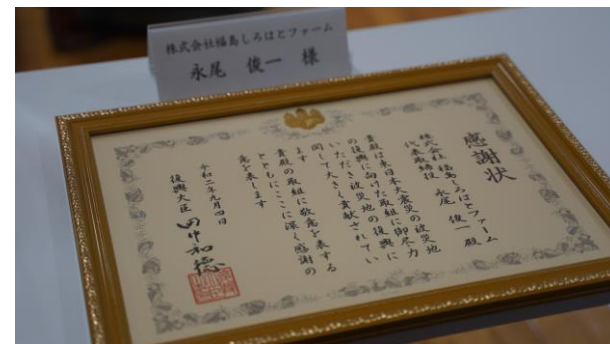 株式会社福島しろはとファーム
永尾 俊一 様
感謝状
株式会社 福島しろはとファーム
代表取締役 永尾 俊一 殿
貴殿は東日本大震災の被災地
の復興に向けた取組に御尽力
いただき被災地の復興に
関して大きく貢献されてい
ます
貴殿の取組に敬意を表する
とともにここに深く感謝の
意を表します
令和二年九月四日
復興大臣 田中和徳